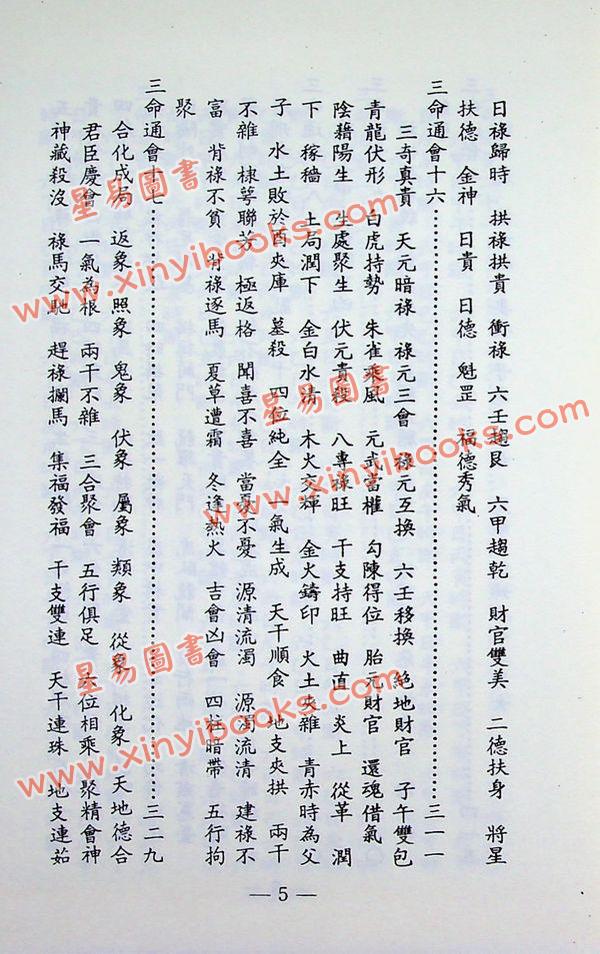 日祿歸時　拱祿拱貴　衝祿　六壬趨艮　六甲趨乾　財官雙美　二德扶身　將星
扶德　金神　日貴　日德　魁罡　福德秀氣
三命通會十六……三一一
三奇真貴　天元暗祿　祿元三會　祿元互換　六壬移換　絕地財官　子午雙包
青龍伏形　白虎持勢　朱雀乘風　元武當權　勾陳得位　胎元財官　還魂借氣
陰藉陽生　生處聚生　伏元貴殺　八專祿旺　干支持旺　曲直　炎上　從革　潤
下　稼穡　土局潤下　金白水清　木火交輝　金火鑄印　火土夾雜　青赤時為父
子　水土敗於酉夾庫　墓殺　四位純全　一氣生成　天干順食　地支夾拱　兩干
不雜　棣萼聯芳　極返格　聞喜不喜　當憂不憂　源清流濁　源濁流清　建祿不
富　背祿不貧　背祿逐馬　夏草遭霜　冬逢熱火　吉會凶會　四柱暗帶　五行拘
聚
三命通會十七……三二九
合化成局　返象　照象　鬼象　伏象　屬象　類象　從象　化象　天地德合
君臣慶會　一氣為根　兩干不雜　三合聚會　五行俱足　六位相乘　聚精會神
神藏殺沒　祿馬交馳　趕祿攔馬　集福發福　干支雙連　天干連珠　地支連茹
— 5 —
星易圖書
www.xinyibooks.com
星易圖書
www.xinyibooks.com
星易圖書
www.xinyibooks.com
星易圖書
www.xinyibooks.com